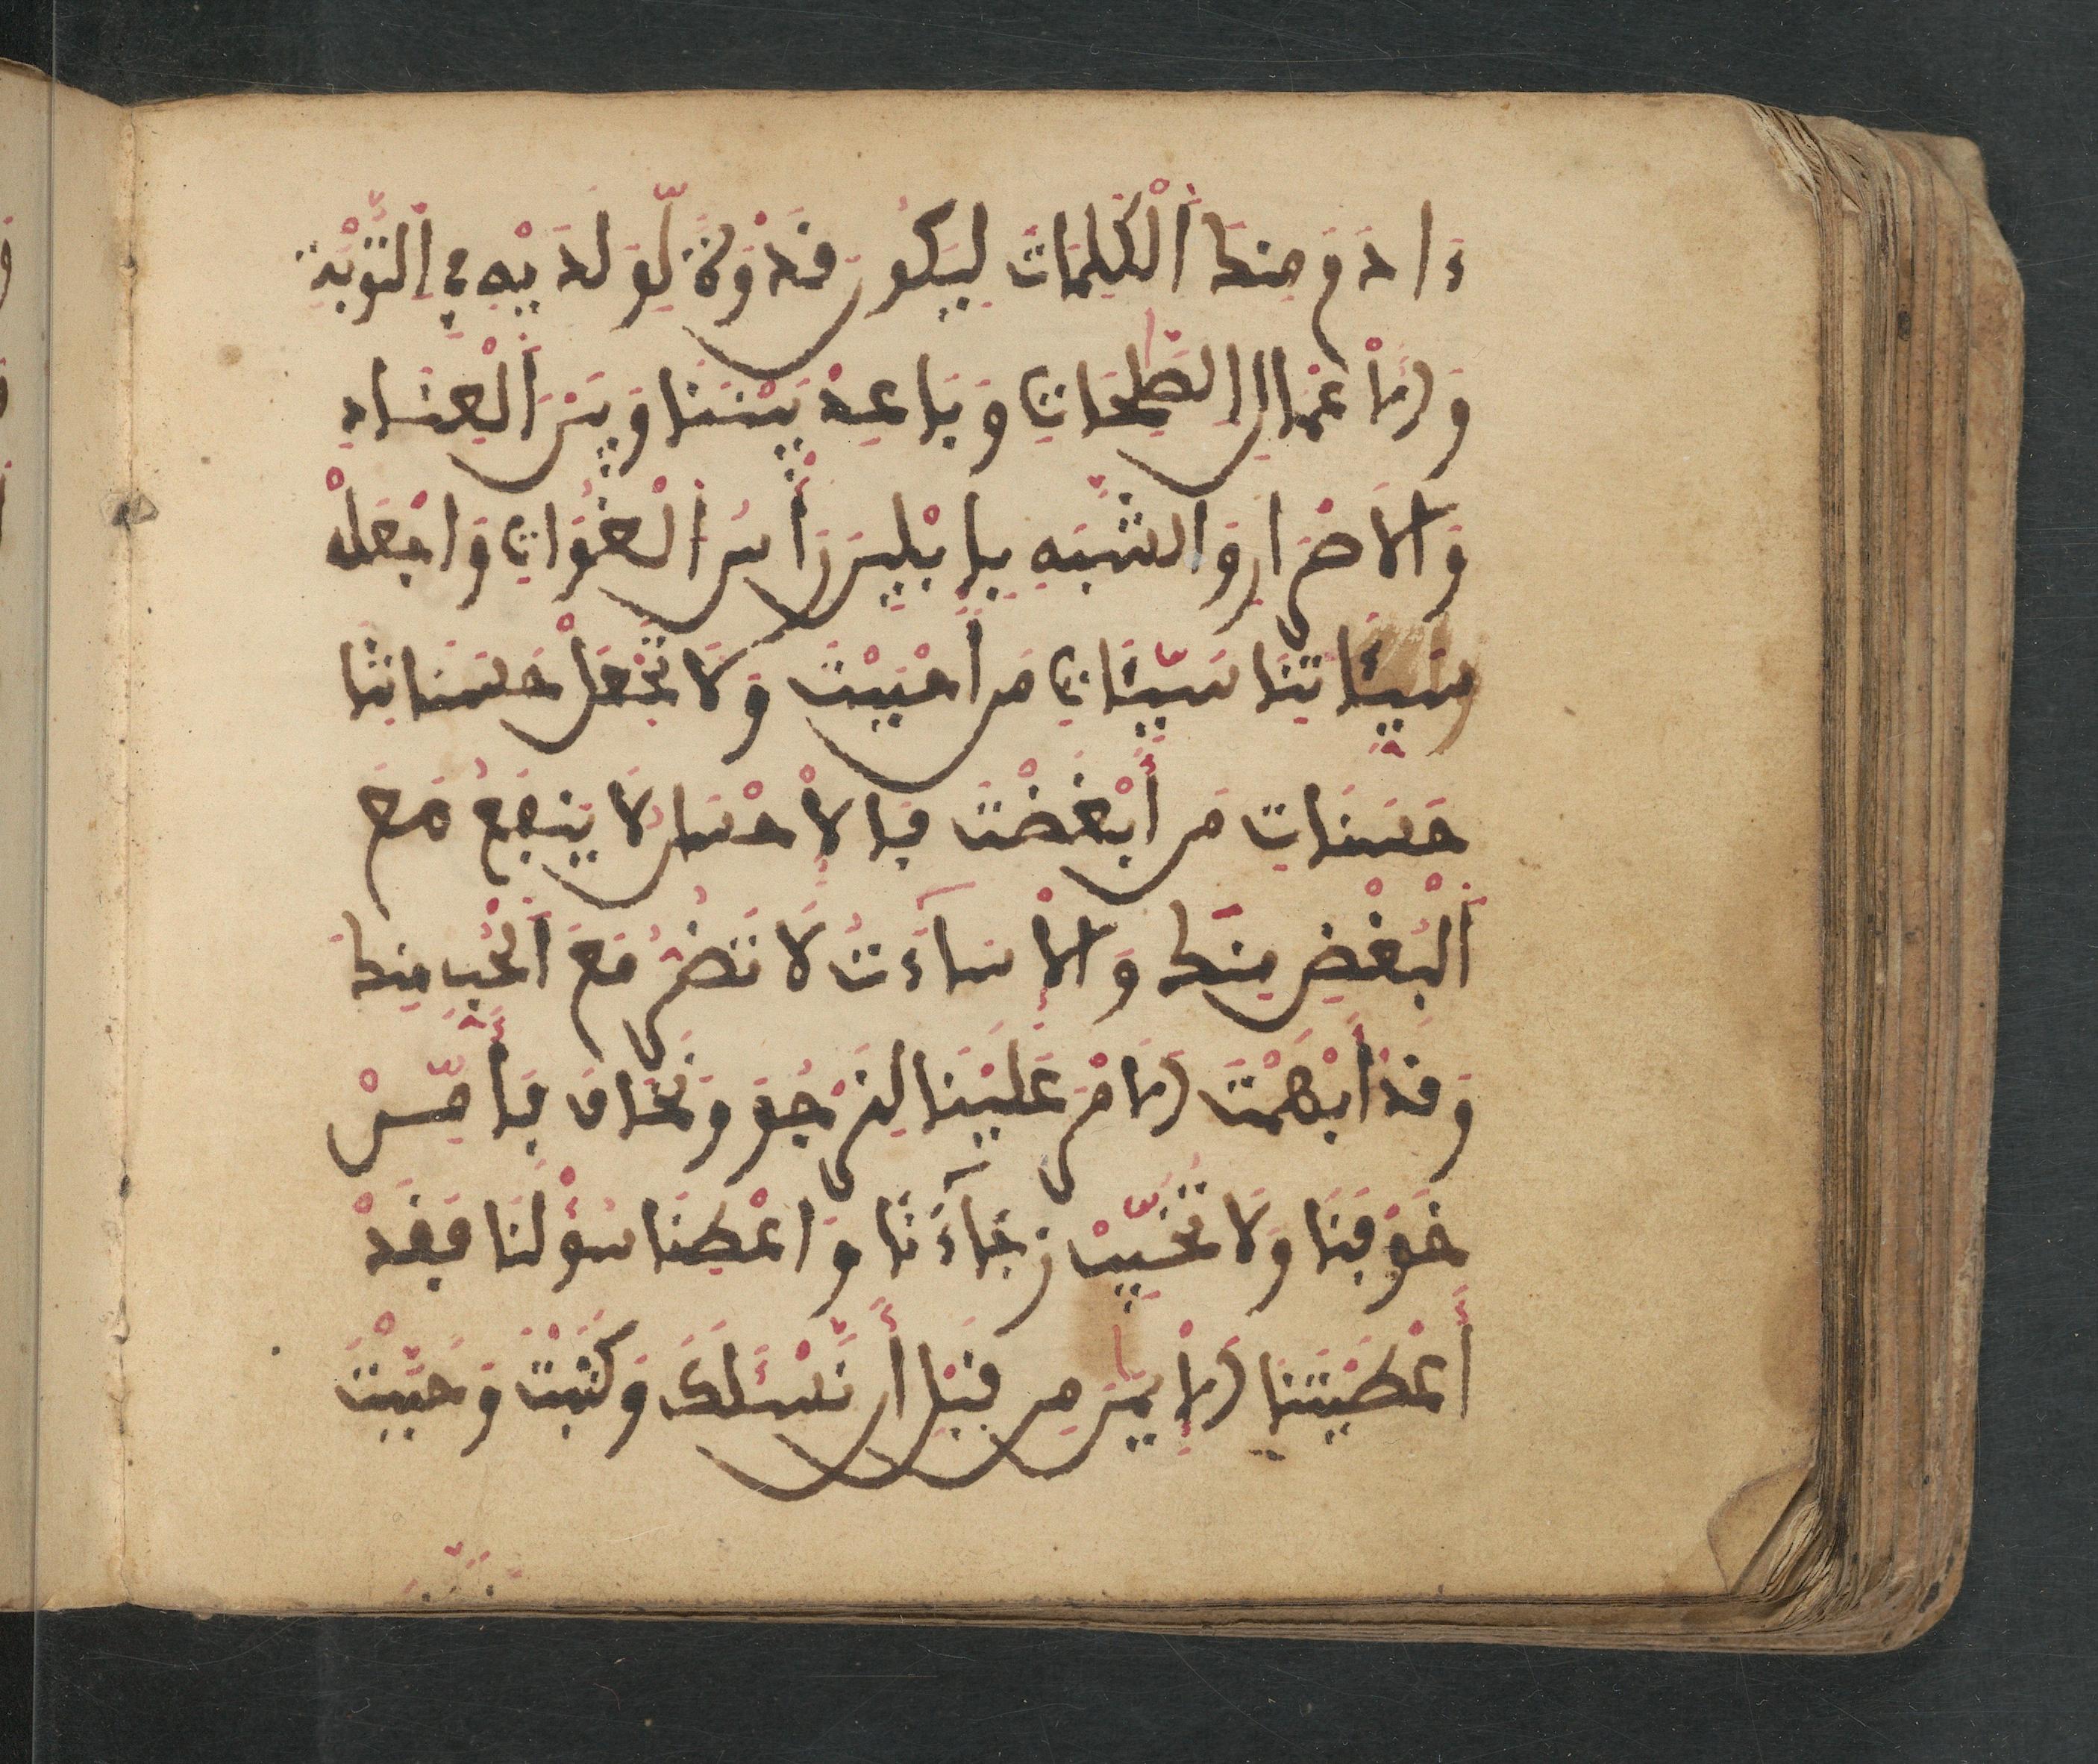 ءَادَمَ مِنكَ ٱلْكَلِمَاتَ لِيَكُونَ قُدْوَةً لِّوَلَدِيْهِ فِي ٱلتَّوْبَةِ
وَالْأَعْمَالِ الصَّٰلِحَاتِ وَبَاعِدْ بَيْنَنَا وَبَيْنَ ٱلْعِنَادِ
وَالْأَضْرَارِ وَالشَّبَهِ بِإِبْلِيسَ رَأْسِ ٱلْغُوَاتِ وَاجْعَلْ
سَيِّئَاتِنَا سَيِّئَاتِ مَنْ أَحْبَبْتَ وَلَا تَجْعَلْ حَسَنَاتِنَا
حَسَنَاتِ مَنْ أَبْغَضْتَ فَالْإِحْسَانُ لَا يَنفَعُ مَعَ
ٱلْبُغْضِ مِنكَ وَالْإِسَآءَتُ لَا تَضُرُّ مَعَ ٱلْحُبِّ مِنكَ
وَقَدْ أَبْهَمْتَ الْأَمْرَ عَلَيْنَا لِنَرْجُوَ وَنَخَافَ فَأَمِّنْ
خَوْفَنَا وَلَا تُخَيِّبْ رَجَآءَنَا وَاعْطِنَا سُؤْلَنَا فَقَدْ
أَعْطَيْتَنَا الْإِيمَٰنَ مِن قَبْلِ أَن نَّسْـَٔلَكَ وَكَتَبْتَ وَحَبَّبْتَ